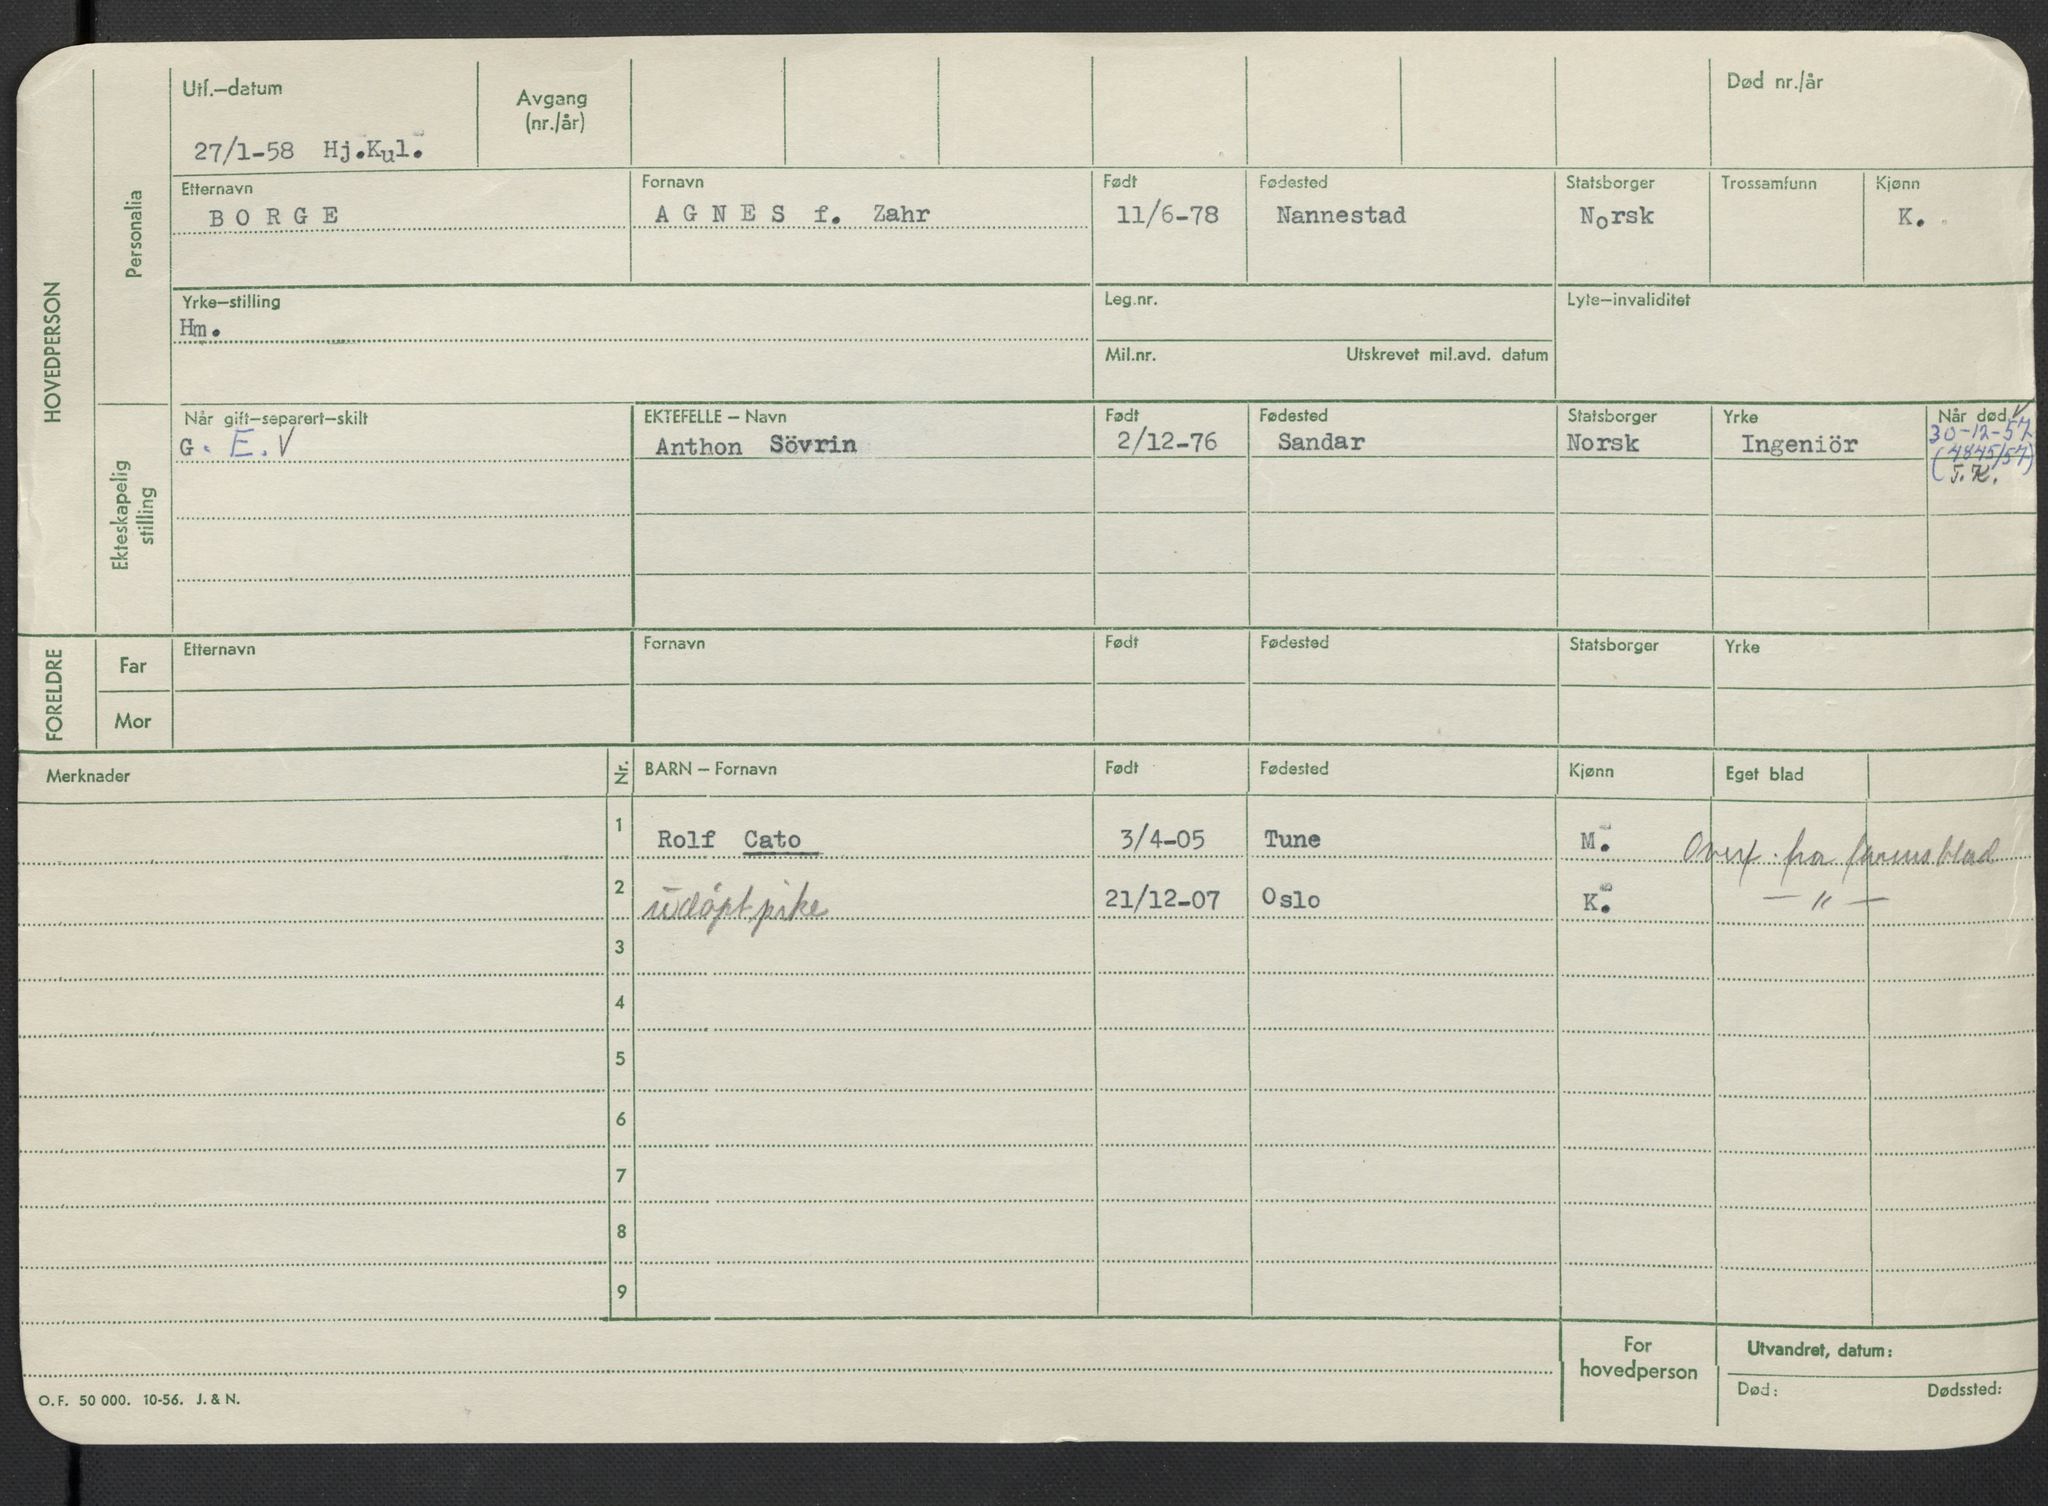 Utf.-datum
Avgang
(nr./år)
Død nr./år
27/1-58 Hj.Kul.
HOVEDPERSON
Personalia
Etternavn Fornavn Født Fødested Statsborger Trossamfunn Kjønn
BORGE AGNES f. Zahr 11/6-78 Nannestad Norsk K.
Yrke-stilling Leg.nr. Lyte-invaliditet
Hm.
Mil.nr. Utskrevet mil.avd. datum
Ekteskapelig
stilling
Når gift-separert-skilt EKTEFELLE - Navn Født Fødested Statsborger Yrke Når død V
G. E.V Anthon Sövrin 2/12-76 Sandar Norsk Ingeniör 30-12-57
(4845/57)
T.K.
FORELDRE
Etternavn Fornavn Født Fødested Statsborger Yrke
Far
Mor
Merknader Nr. BARN - Fornavn Født Fødested Kjønn Eget blad
1 Rolf Cato 3/4-05 Tune M. Overf. fra farens blad
2 udøpt pike 21/12-07 Oslo K. — " —
3
4
5
6
7
8
9
For
hovedperson
Utvandret, datum:
Død: Dødssted:
O.F. 50 000. 10-56. J. & N.